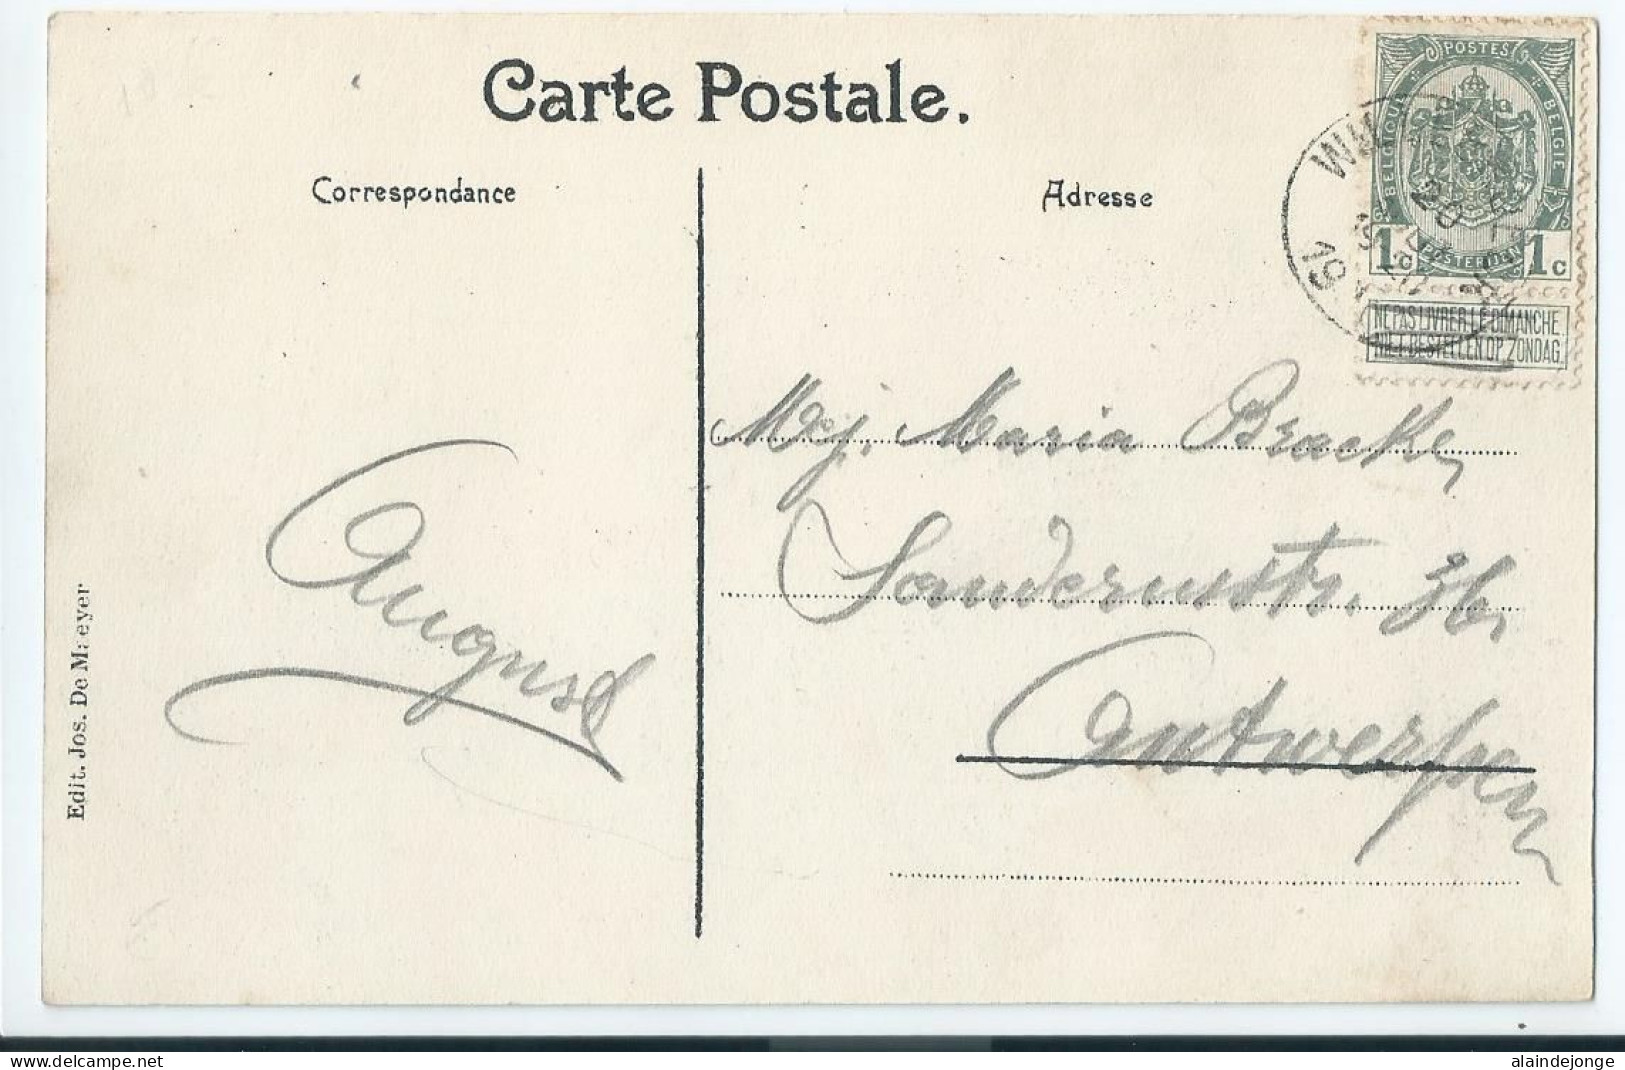 Carte Postale.
Correspondance
Adresse
POSTES
BELGIQUE
BELGIE
POSTERIJEN
1 1c
NE PAS LIVRER LE DIMANCHE
NIET BESTELLEN OP ZONDAG
20
19
Mej. Maria Bracke,
Antwerpen
August
Edit. Jos. De Maeyer
www.delcampe.net
alaindejonge